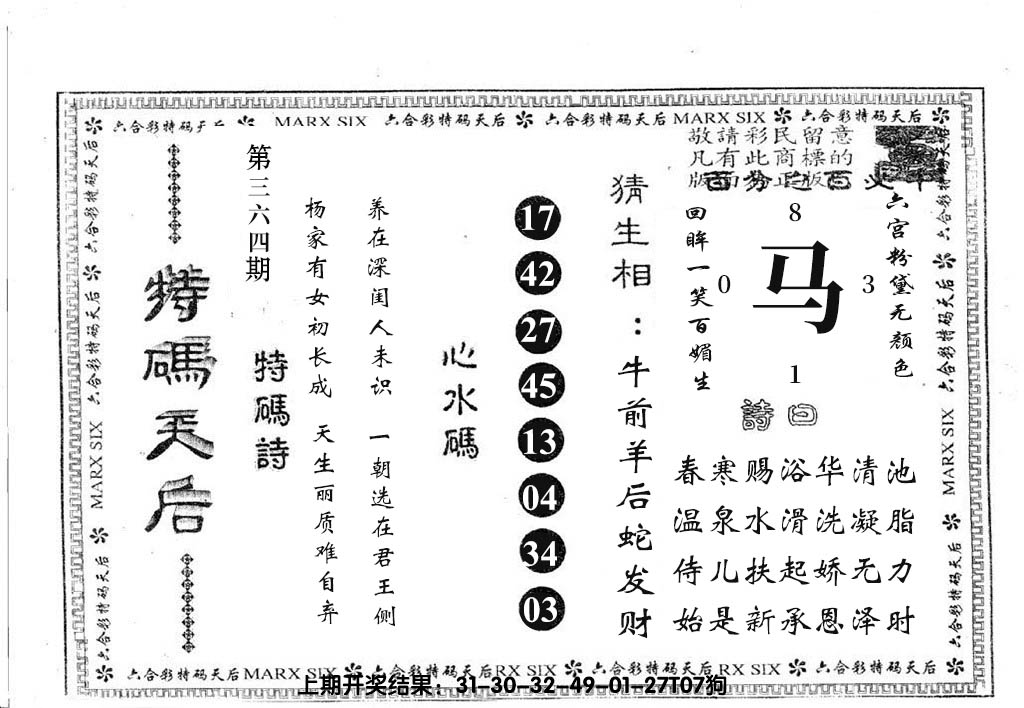 六合彩特码天后 MARX SIX 六合彩特码天后 六合彩特码天后 MARX SIX 六合彩特码天后
敬請彩民留意
凡有此商標的
版面为正版
六宫粉黛无颜色
8
0 马 3
1
回眸一笑百媚生
詩曰
春寒赐浴华清池
温泉水滑洗凝脂
侍儿扶起娇无力
始是新承恩泽时
猜生相：牛前羊后蛇发财
17
42
27
45
13
04
34
03
心水碼
养在深闺人未识 一朝选在君王侧
杨家有女初长成 天生丽质难自弃
特碼詩
第三六四期
特碼天后
六合彩特码天后 六合彩特码天后 MARX SIX 六合彩特码天后
六合彩特码天后 六合彩特码天后 MARX SIX 六合彩特码天后
六合彩特码天后 MARX SIX 六合彩特码天后 RX SIX 六合彩特码天后 RX SIX 六合彩特码天后
上期开奖结果：31-30-32-49-01-27T07狗